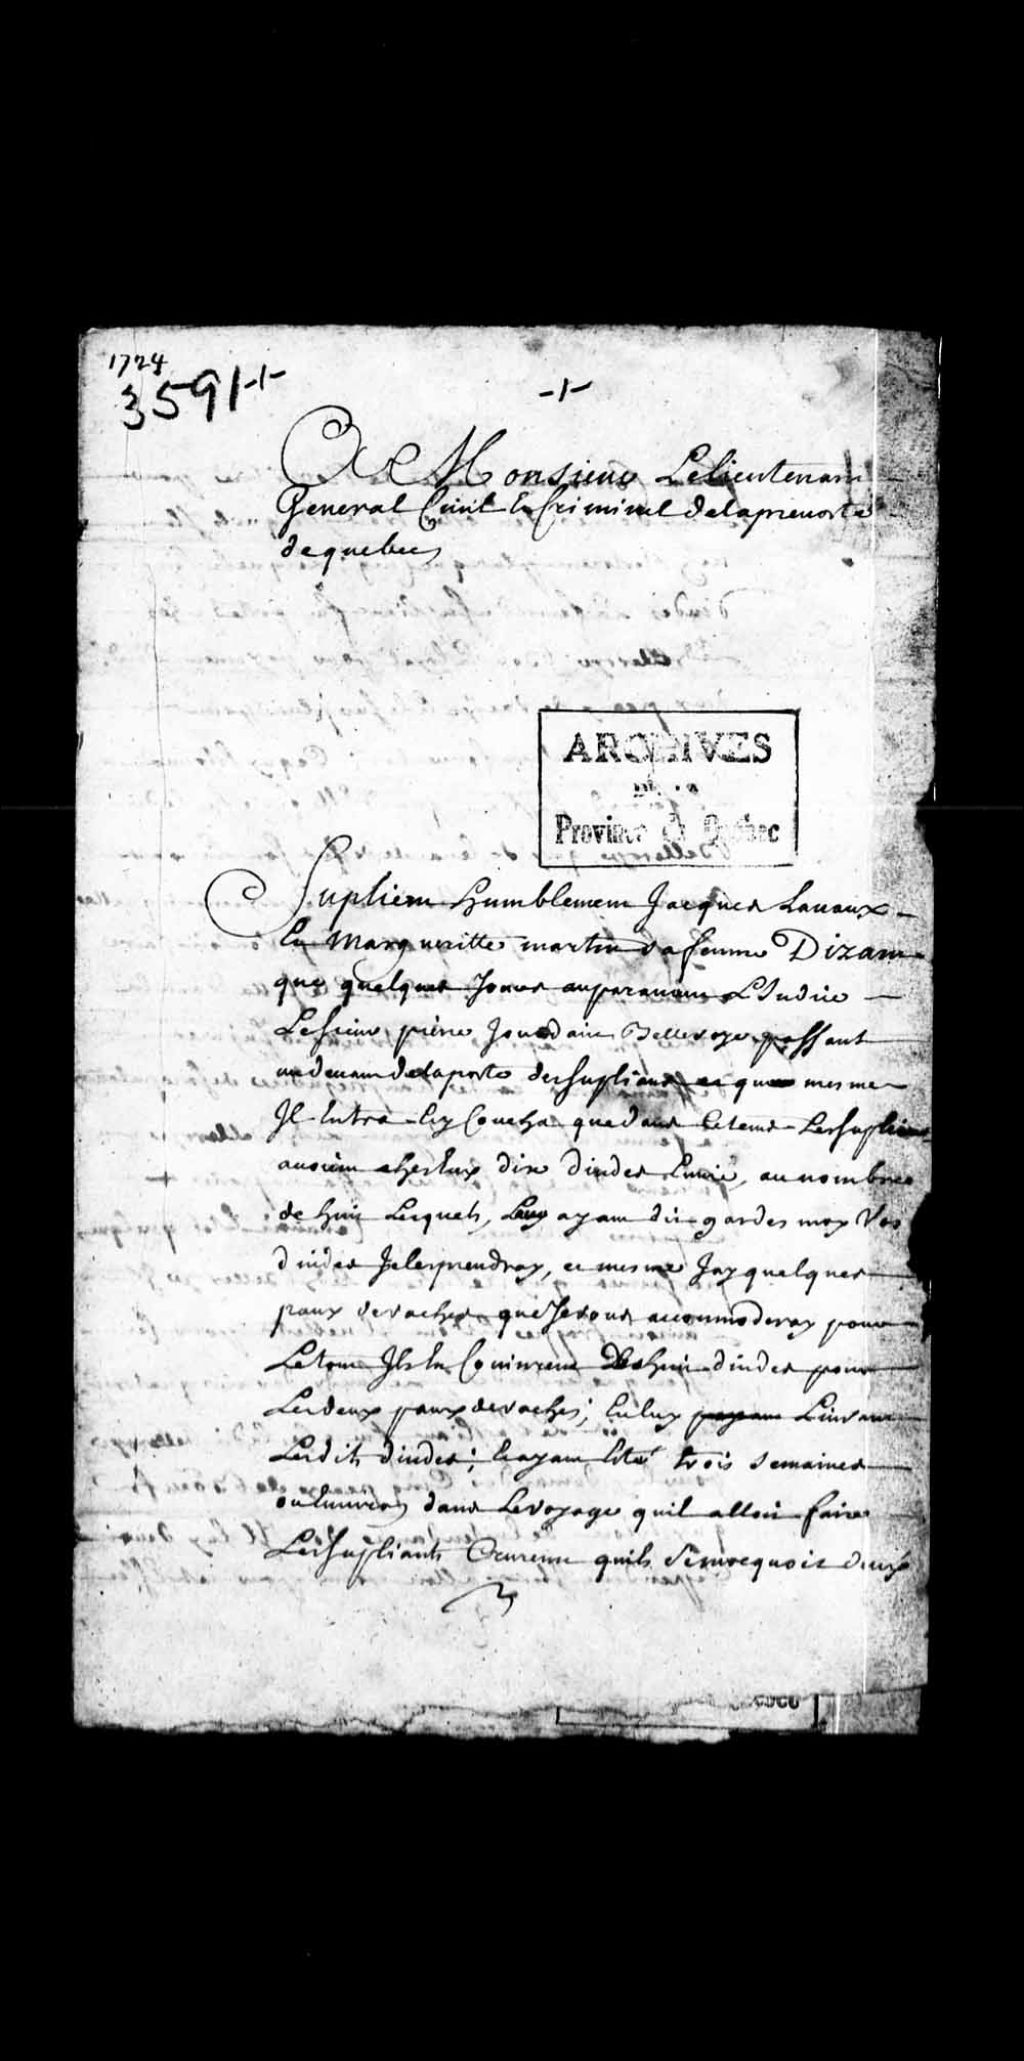 1724
3591 -+-
-+-
A Monsieur Le lieutenant
General Civil Et Criminel de la prevosté
de quebecq
ARCHIVES
de la
Province de Québec
Suplient humblement Jacques Lavaux
Et Margueritte martin sa femme Dizant
que quelques Jours auparavant
Le sieur pierre Jourdain Bellerose passant
au devant de la porte des supliants et que mesme
Il Entra Et y Coucha que dans le tems Les suplians
avoient chez Eux dix dindes au nombre
de huit Lesquels, Luy ayant dit gardes moy Vos
dindes Je les prendray, et mesme Jay quelques
paux de vaches que Je vous accommoderay pour
Le tout Ils En Convinrent Les huit dindes pour
Les deux paux de vaches; Et luy Livrant
Les dits dindes; Et ayant Eté trois semaines
ou Environ dans Le voyage quil alloit faire
Les supliants Crurent quils se mocquoit deux